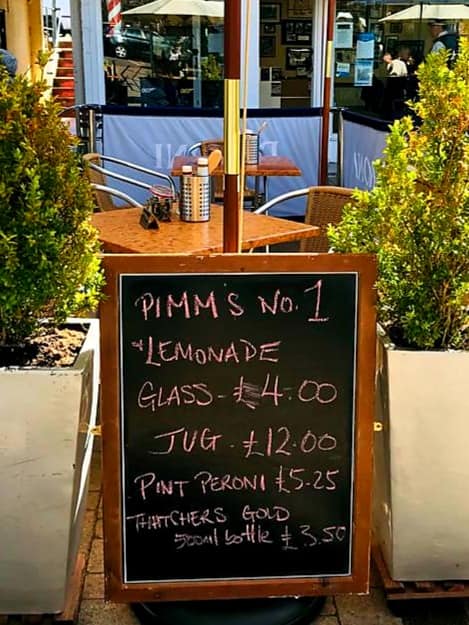 PIMM'S No. 1
+LEMONADE
GLASS - £4.00
JUG - £12.00
PINT PERONI £5.25
THATCHERS GOLD
500ml bottle £3.50